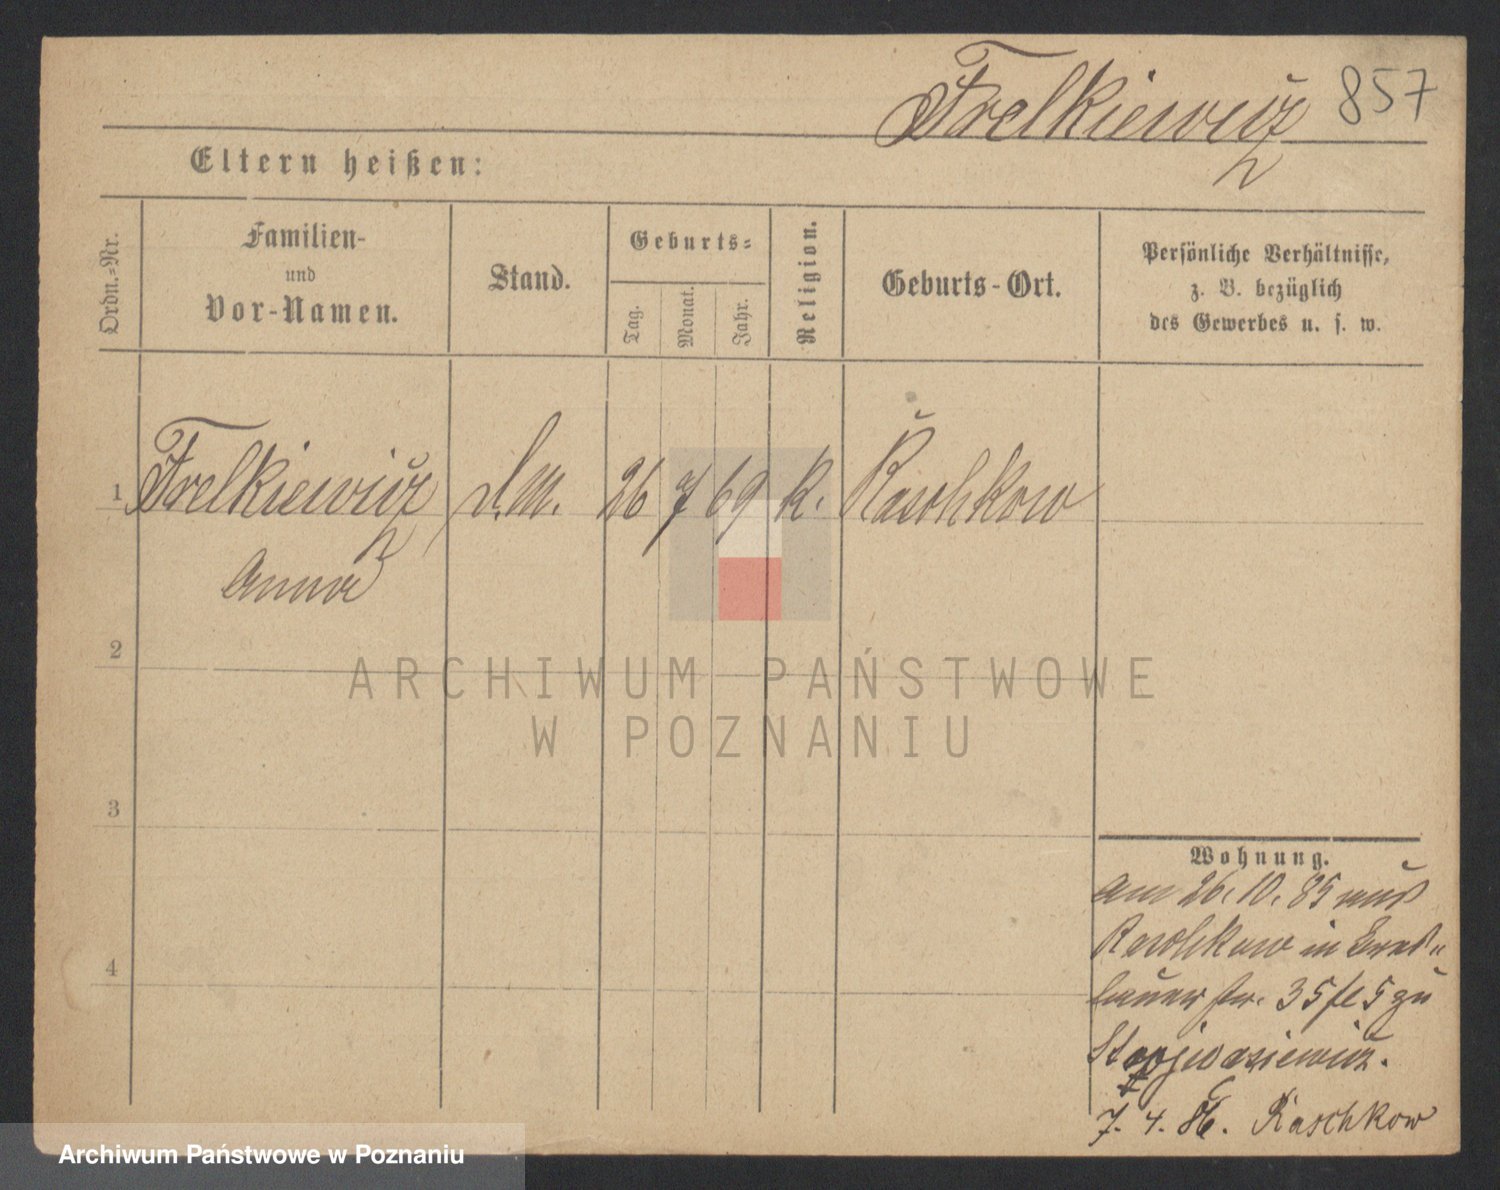 Frelkiewicz 857
Eltern heißen:
Ordn.=Nr.
Familien-
und
Vor-Namen.
Stand.
Geburts=
Tag.
Monat.
Jahr.
Religion.
Geburts-Ort.
Persönliche Verhältnisse,
z. B. bezüglich
des Gewerbes u. s. w.
1 Frelkiewicz d. M. 26 7 69 k. Raschkow
Anna
2
3
4
Wohnung.
am 26. 10. 85 aus
Raschkow in
35 zu
7. 4. 86. Raschkow
ARCHIWUM PAŃSTWOWE
W POZNANIU
Archiwum Państwowe w Poznaniu